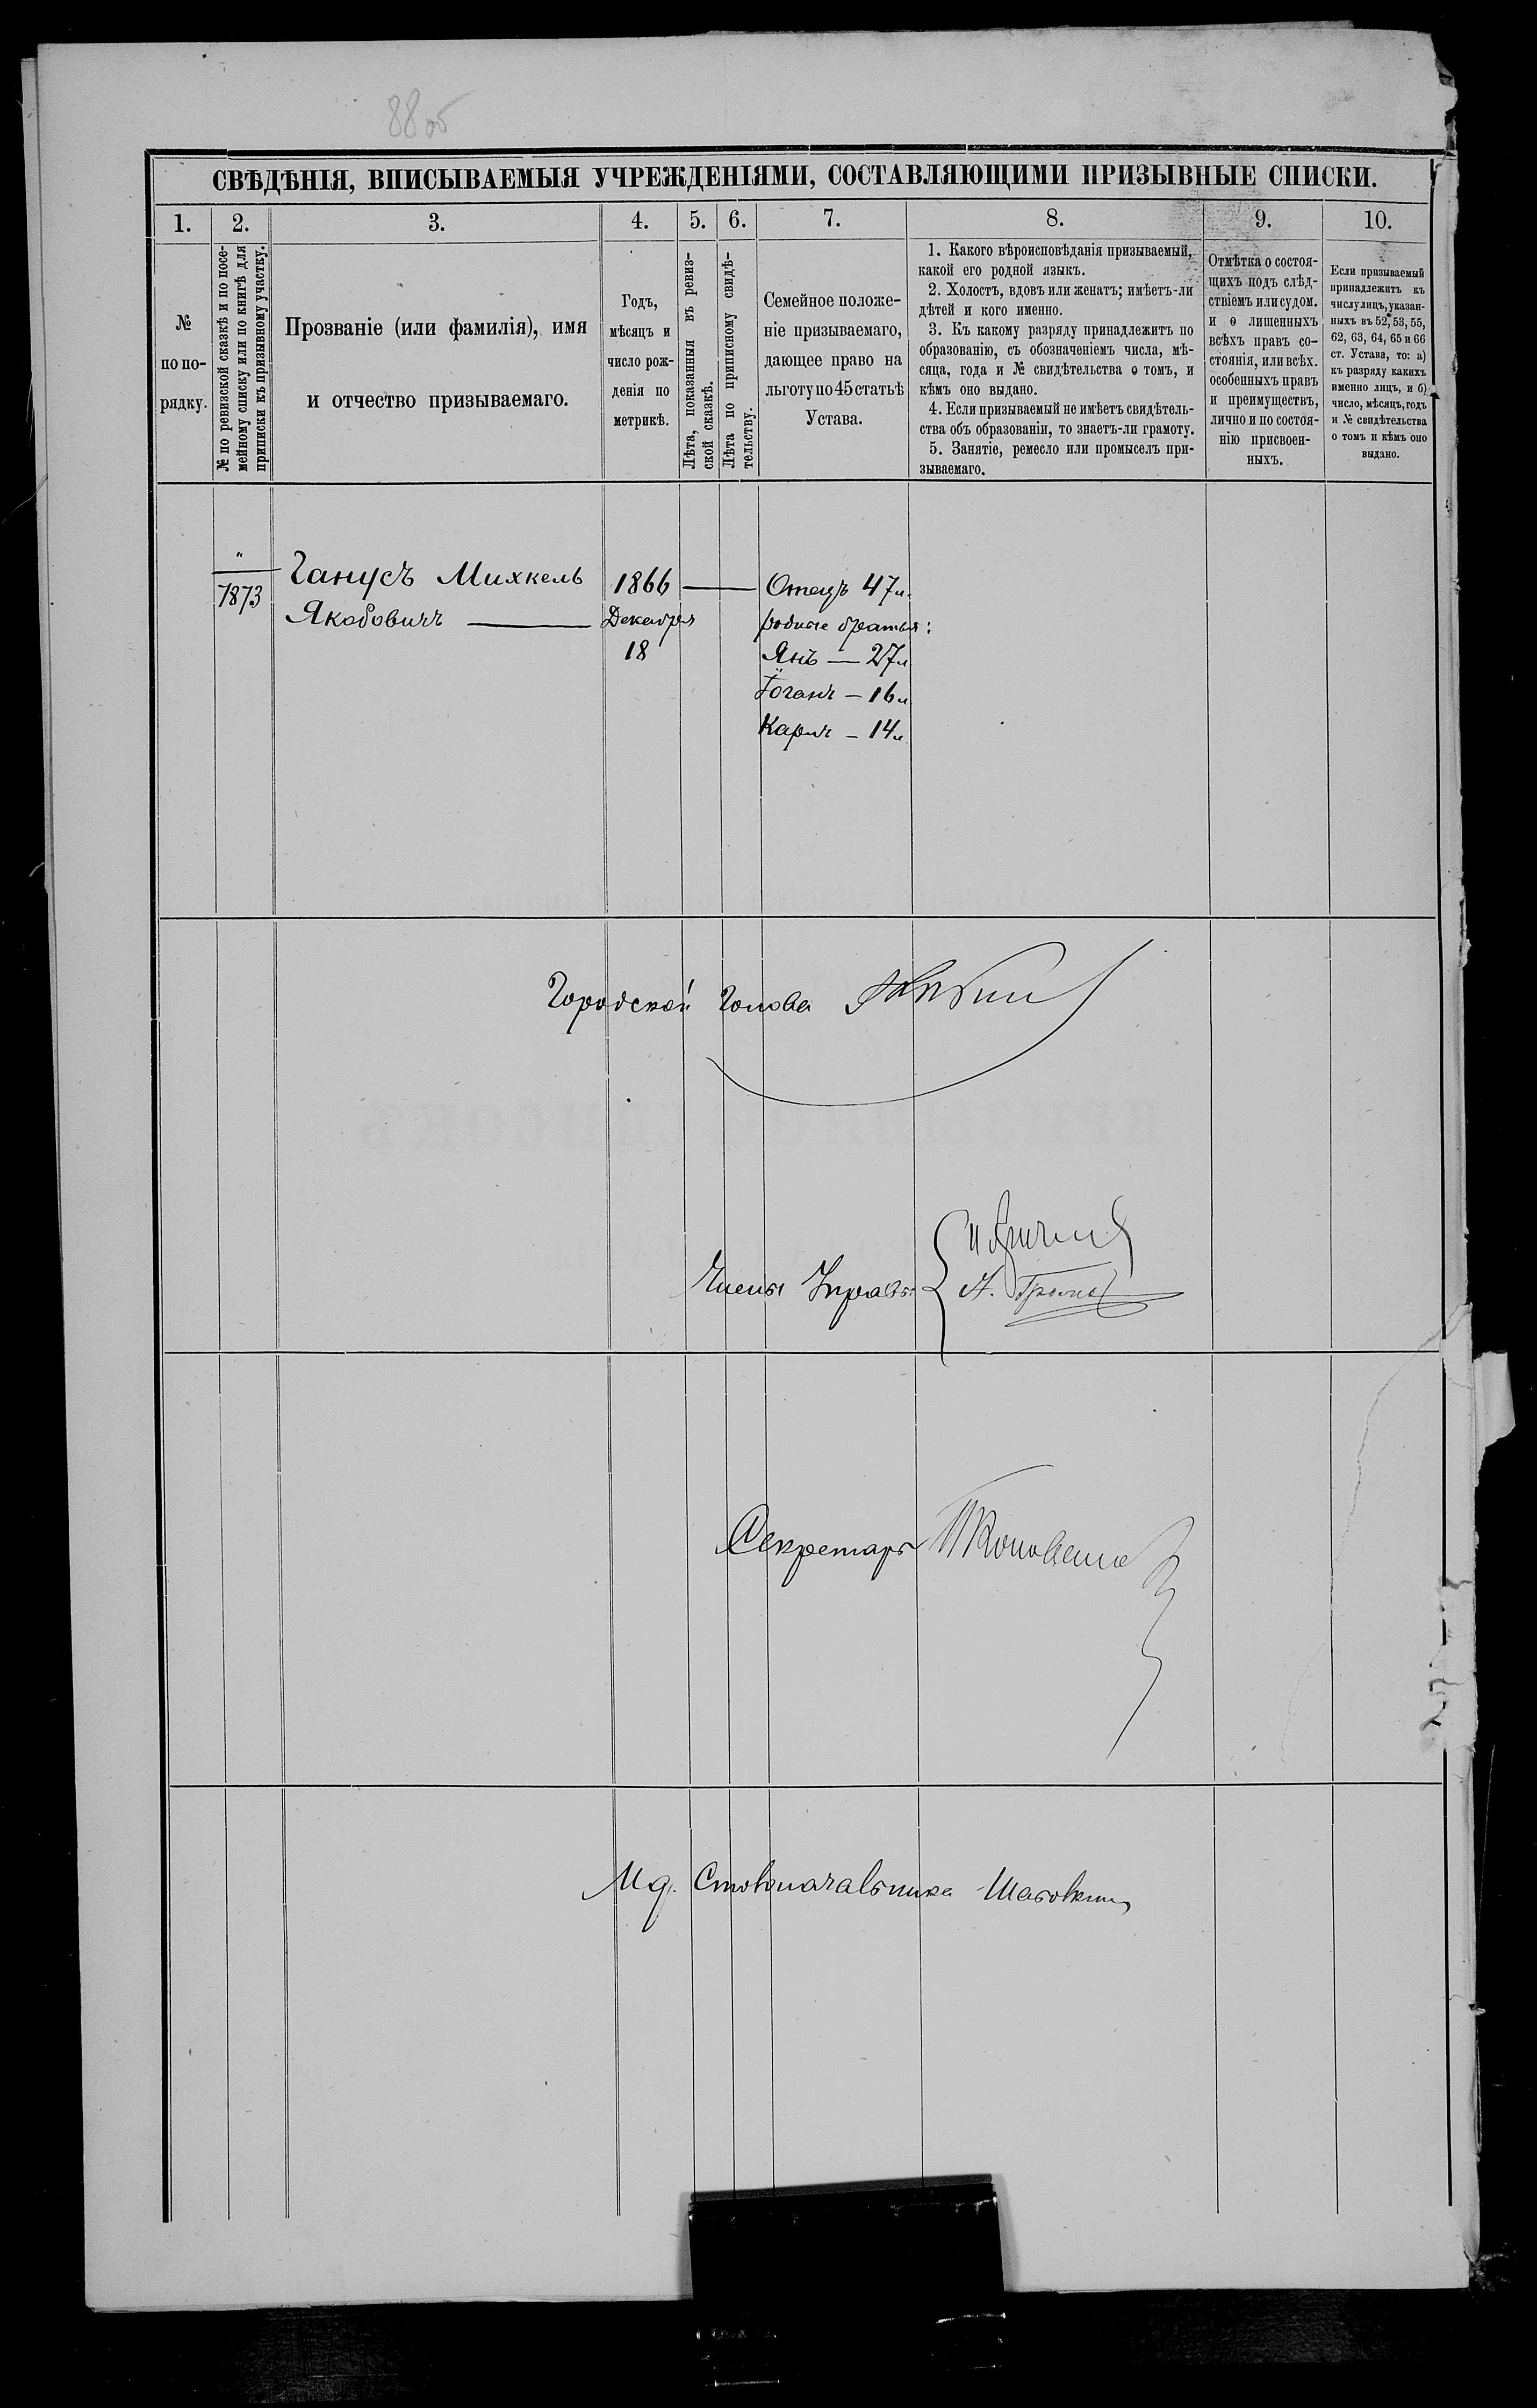 88об
СВѢДѢНІЯ, ВПИСЫВАЕМЫЯ УЧРЕЖДЕНІЯМИ, СОСТАВЛЯЮЩИМИ ПРИЗЫВНЫЕ СПИСКИ.
1.
2.
3.
4.
5.
6.
7.
8.
9.
10.
№
по по-
рядку.
№ по ревизской сказкѣ и по посе-
мейному списку или по книгѣ для
приписки къ призывному участку.
Прозваніе (или фамилія), имя
и отчество призываемаго.
Годъ,
мѣсяцъ и
число рож-
денія по
метрикѣ.
Лѣта, показанныя въ ревиз-
ской сказкѣ.
Лѣта по приписному свидѣ-
тельству.
Семейное положе-
ніе призываемаго,
дающее право на
льготу по 45 статьѣ
Устава.
1. Какого вѣроисповѣданія призываемый,
какой его родной языкъ.
2. Холостъ, вдовъ или женатъ; имѣетъ-ли
дѣтей и кого именно.
3. Къ какому разряду принадлежитъ по
образованію, съ обозначеніемъ числа, мѣ-
сяца, года и № свидѣтельства о томъ, и
кѣмъ оно выдано.
4. Если призываемый не имѣетъ свидѣтель-
ства объ образованіи, то знаетъ-ли грамоту.
5. Занятіе, ремесло или промыселъ при-
зываемаго.
Отмѣтка о состоя-
щихъ подъ слѣд-
ствіемъ или судом.
и о лишенныхъ
всѣхъ правъ со-
стоянія, или всѣх.
особенныхъ правъ
и преимуществъ,
лично и по состоя-
нію присвоен-
ныхъ.
Если призываемый
принадлежитъ къ
числу лицъ, указан-
ныхъ въ 52, 53, 55,
62, 63, 64, 65 и 66
ст. Устава, то: а)
къ разряду какихъ
именно лицъ, и б)
число, мѣсяцъ, годъ
и № свидѣтельства
о томъ и кѣмъ оно
выдано.
"
1873
Ганусъ Михкель
Якобовичъ
1866
Декабря
18
Отецъ 47 л.
родные братья:
Янъ — 27 л
Іоганъ — 16 л
Карлъ — 14 л.
Городской Голова
Члены Управы
А.
Секретарь
И д. Столоначальника